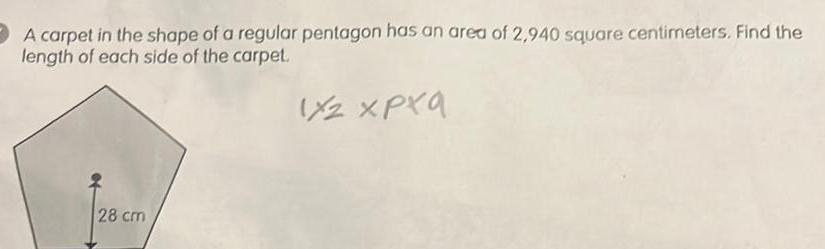 A carpet in the shape of a regular pentagon has an area of 2,940 square centimeters. Find the
length of each side of the carpet.
1/2 x p x a
28 cm